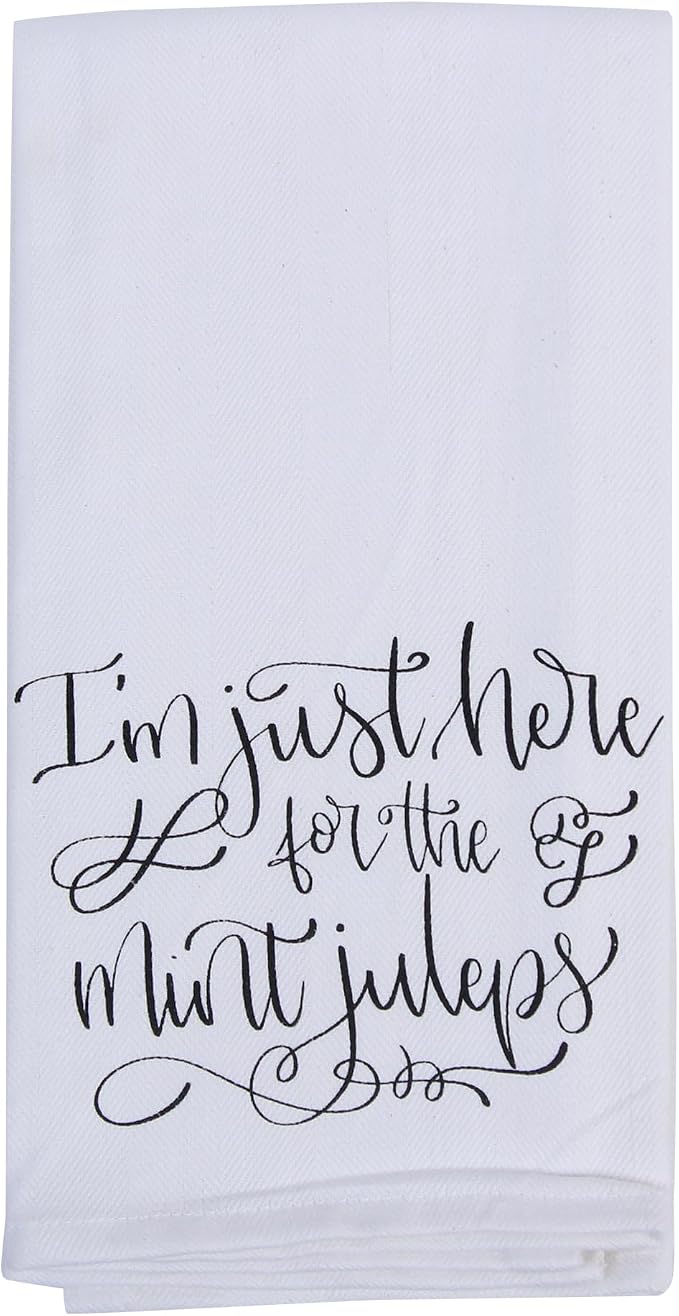 I'm just here
for the
mint juleps